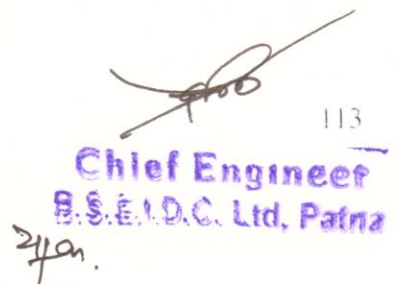 113
Chief Engineer
B.S.E.I.D.C. Ltd, Patna